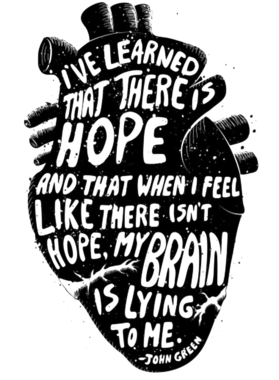 I'VE LEARNED
THAT THERE IS
HOPE
AND THAT WHEN I FEEL
LIKE THERE ISN'T
HOPE, MY BRAIN
IS LYING
TO ME.
-JOHN GREEN